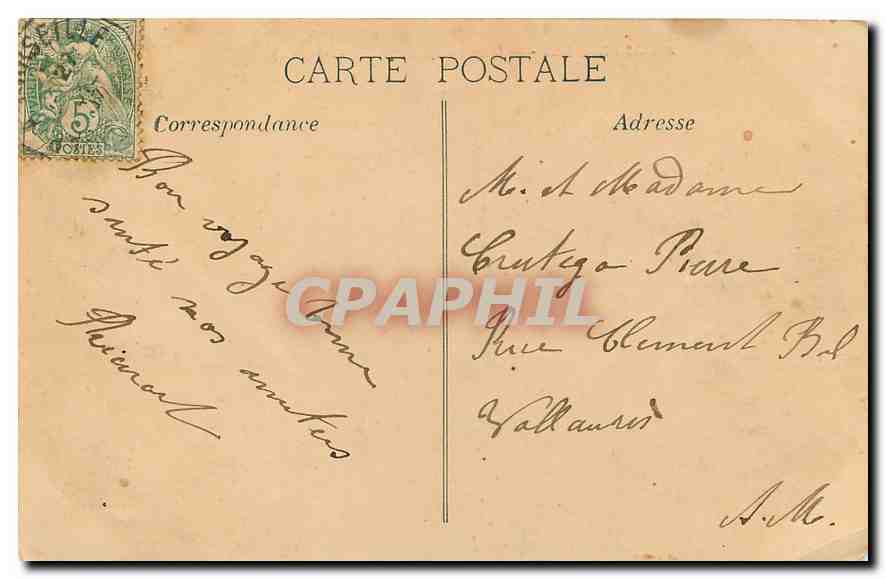 CARTE POSTALE
Correspondance
Adresse
MARSEILLE
5
POSTES
Bon voyage bonne
santé nos amitiés
M. et Madame
Crutega Pierre
Rue Clement Bel
Vallauris
A. M.
CPAPHIL